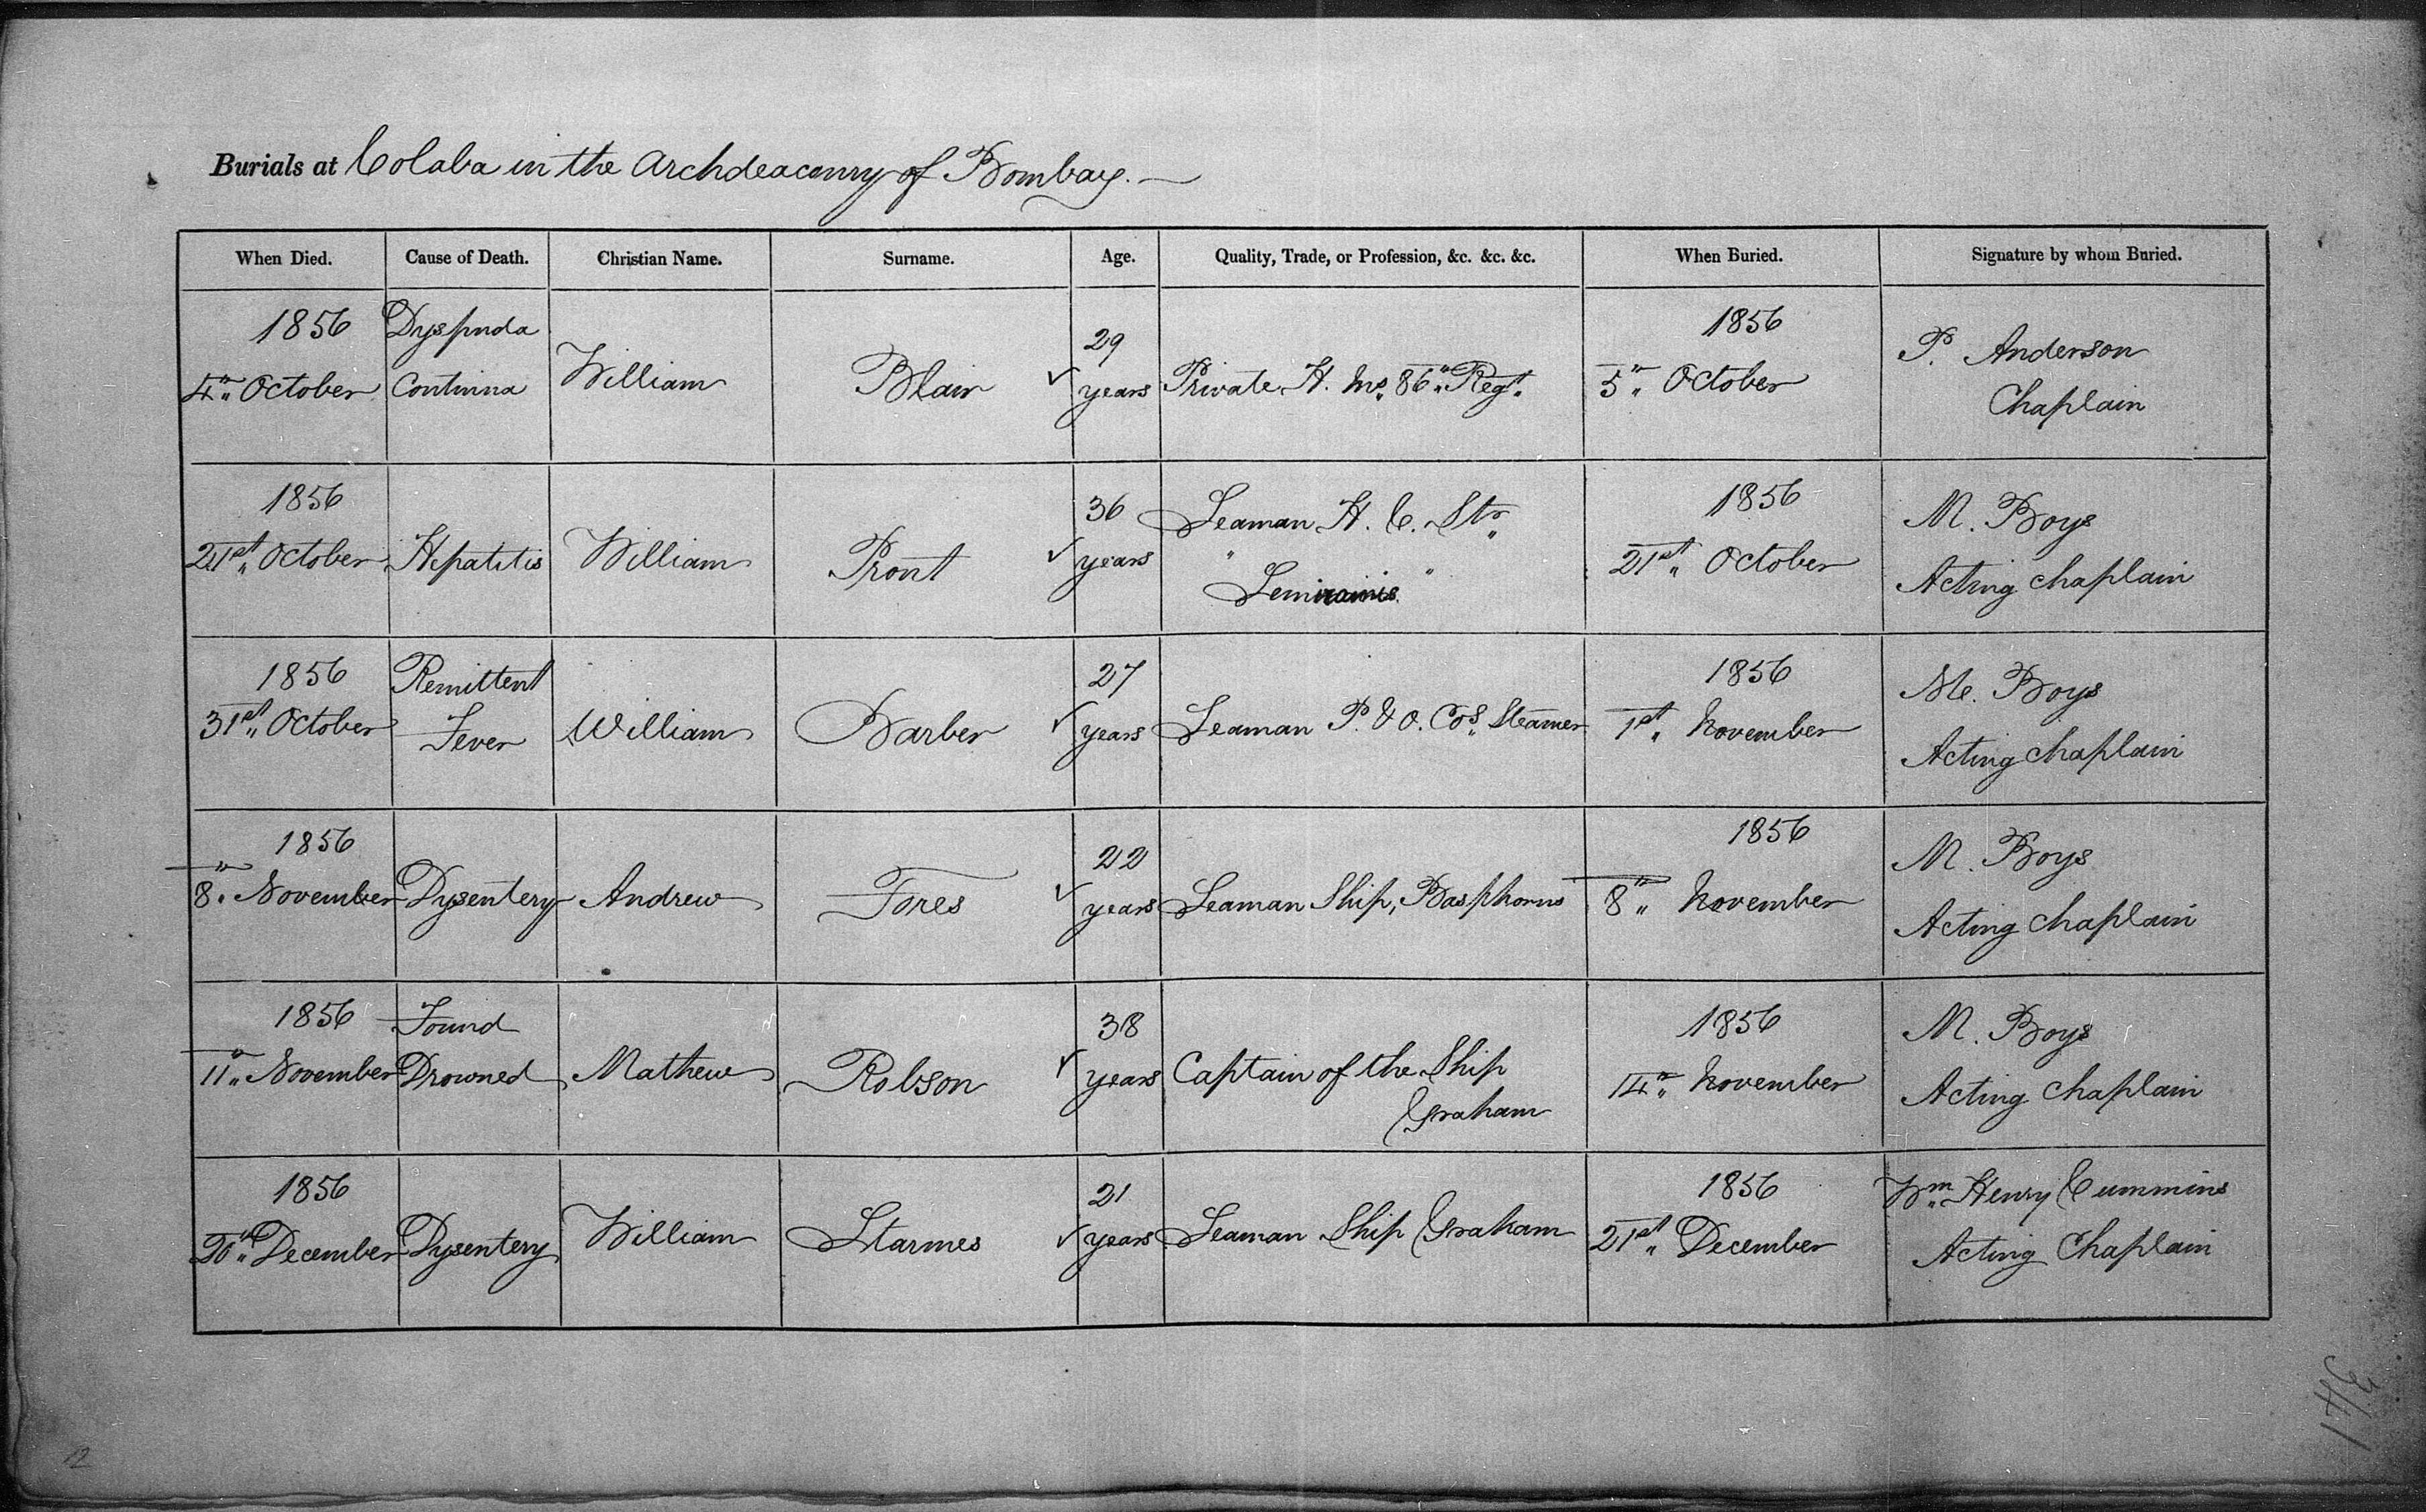 Burials at Colaba in the Archdeaconry of Bombay.
When Died. Cause of Death. Christian Name. Surname. Age. Quality, Trade, or Profession, &c. &c. &c. When Buried. Signature by whom Buried.
1856 4th October Dyspnda Continna William Blair 29 years Private H. Ms. 86th Regt. 1856 5th October P. Anderson Chaplain
1856 21st October Hepatitis William Pront 36 years Seaman H. C. Str. " Semiramis " 1856 21st October M. Boys Acting Chaplain
1856 31st October Remittent Fever William Barber 27 years Seaman P. & O. Cos. Steamer 1856 1st November M. Boys Acting Chaplain
1856 8th November Dysentery Andrew Fores 22 years Seaman Ship, Basphorus 1856 8th November M. Boys Acting Chaplain
1856 11th November Found Drowned Mathew Robson 38 years Captain of the Ship Graham 1856 14th November M. Boys Acting Chaplain
1856 20th December Dysentery William Starmes 21 years Seaman Ship Graham 1856 21st December Wm. Henry Cummins Acting Chaplain
12